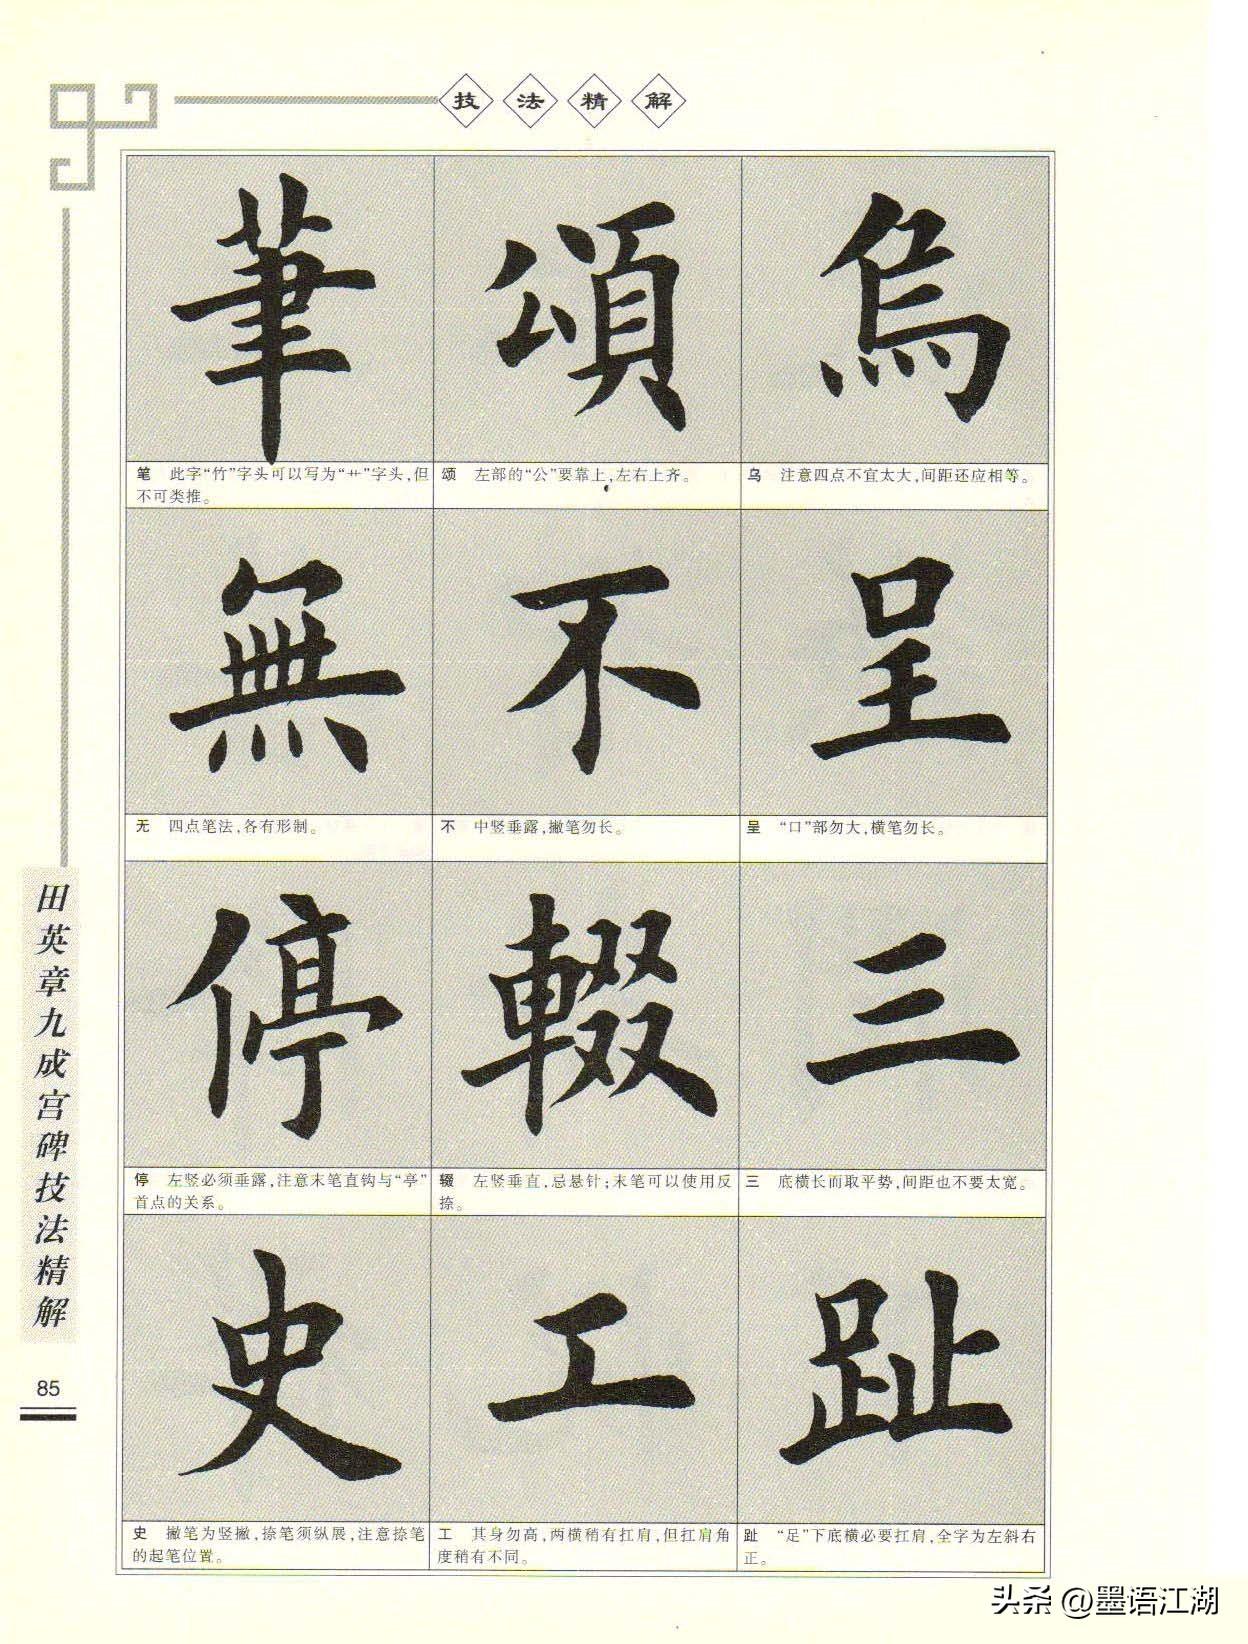 技法精解
筆 頌 烏
笔 此字“竹”字头可以写为“艹”字头,但
不可类推。
颂 左部的“公”要靠上,左右上齐。
乌 注意四点不宜太大,间距还应相等。
無 不 呈
无 四点笔法,各有形制。
不 中竖垂露,撇笔勿长。
呈 “口”部勿大,横笔勿长。
停 輟 三
停 左竖必须垂露,注意末笔直钩与“亭”
首点的关系。
辍 左竖垂直,忌悬针;末笔可以使用反
捺。
三 底横长而取平势,间距也不要太宽。
史 工 趾
史 撇笔为竖撇,捺笔须纵展,注意捺笔
的起笔位置。
工 其身勿高,两横稍有扛肩,但扛肩角
度稍有不同。
趾 “足”下底横必要扛肩,全字为左斜右
正。
田英章九成宫碑技法精解
85
头条 @墨语江湖